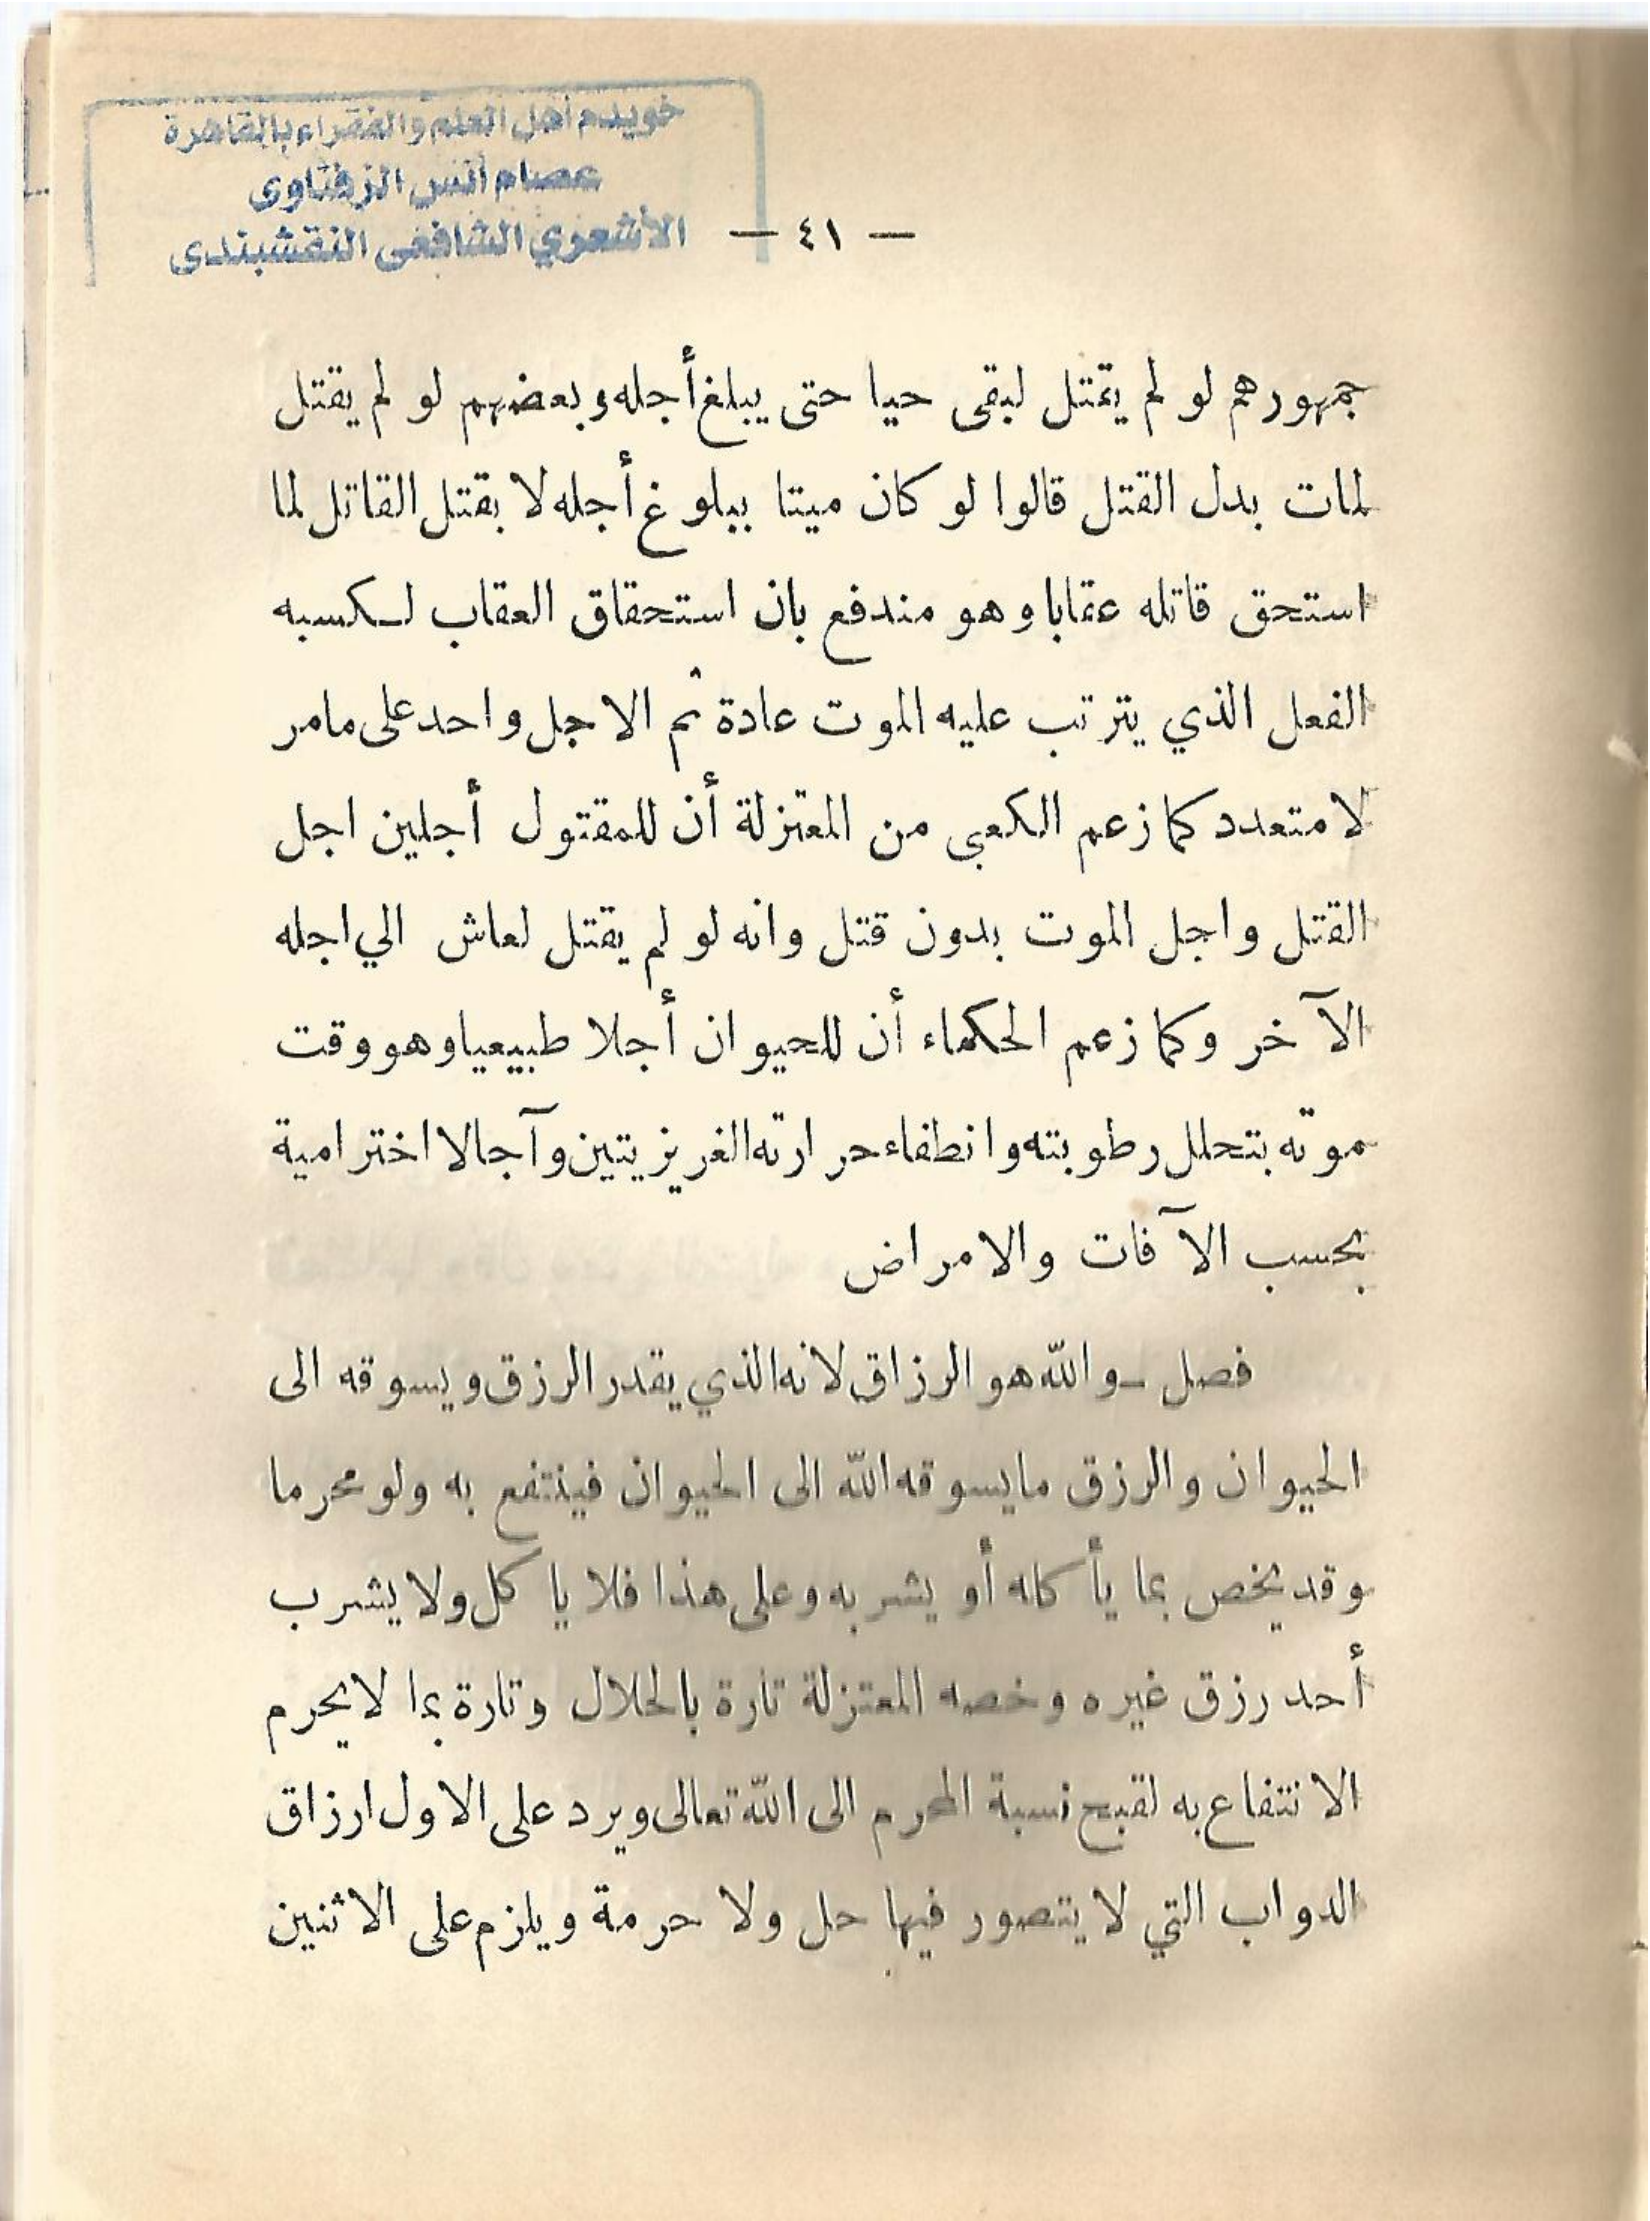 خويدم أهل العلم والفقراء بالقاهرة
عصام أنس الزفتاوى
الأشعري الشافعى النقشبندى
— ٤١ —
جمهورهم لو لم يقتل لبقى حيا حتى يبلغ أجله وبعضهم لو لم يقتل
لمات بدل القتل قالوا لو كان ميتا ببلوغ أجله لا بقتل القاتل لما
استحق قاتله عقابا وهو مندفع بان استحقاق العقاب لكسبه
الفعل الذي يترتب عليه الموت عادة ثم الاجل واحد على مامر
لا متعدد كما زعم الكعبى من المعتزلة أن للمقتول أجلين اجل
القتل واجل الموت بدون قتل وانه لو لم يقتل لعاش الي اجله
الآخر وكما زعم الحكماء أن للحيوان أجلا طبيعيا وهو وقت
موته بتحلل رطوبته وانطفاء حرارته الغريزيتين وآجالا اخترامية
بحسب الآفات والامراض
فصل ــ والله هو الرزاق لانه الذي يقدر الرزق ويسوقه الى
الحيوان والرزق مايسوقه الله الى الحيوان فينتفع به ولو محرما
وقد يخص بما يأكله أو يشربه وعلى هذا فلا ياكل ولا يشرب
أحد رزق غيره وخصه المعتزلة تارة بالحلال وتارة بما لا يحرم
الانتفاع به لقبح نسبة المحرم الى الله تعالى ويرد على الاول ارزاق
الدواب التي لا يتصور فيها حل ولا حرمة ويلزم على الاثنين